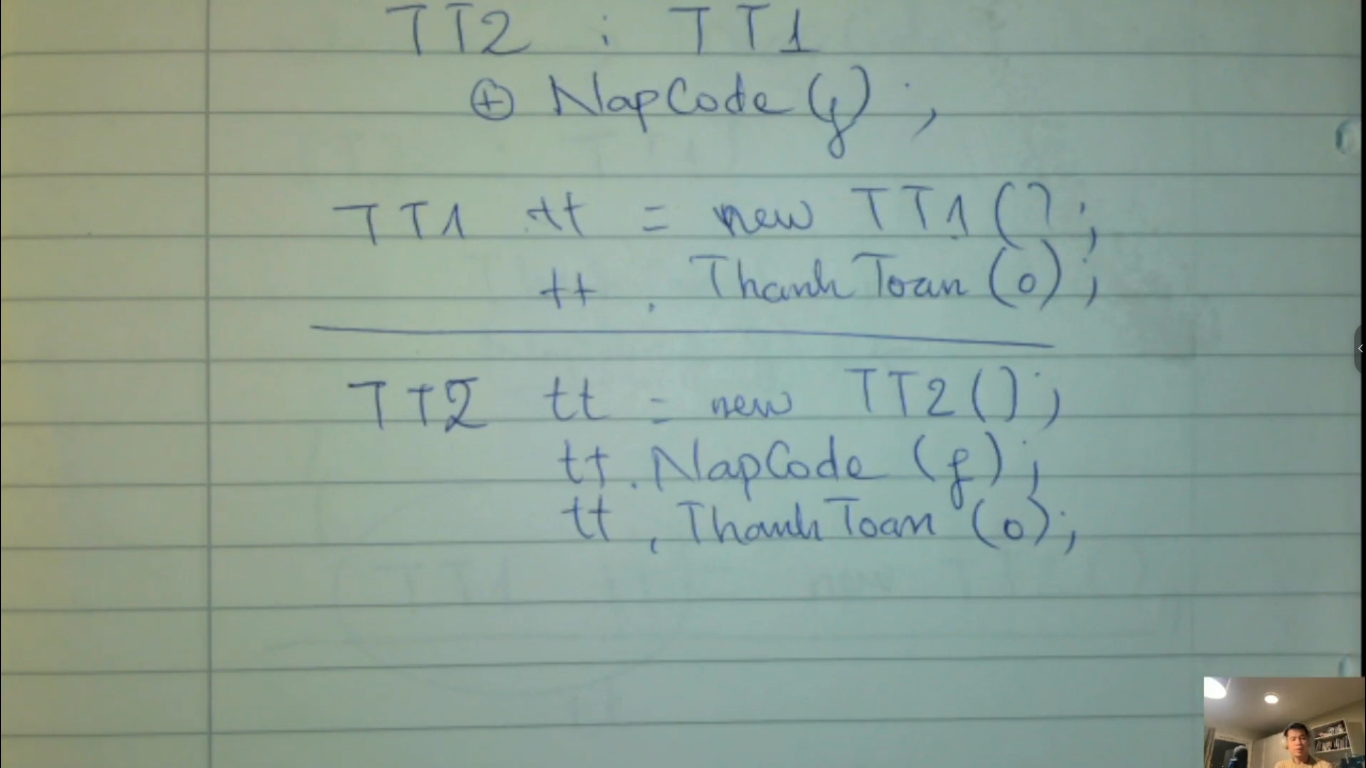 TT2 : TT1
⊕ NapCode(f);
TT1 tt = new TT1();
tt. ThanhToan(o);
TT2 tt = new TT2();
tt.NapCode(f);
tt.ThanhToan(o);